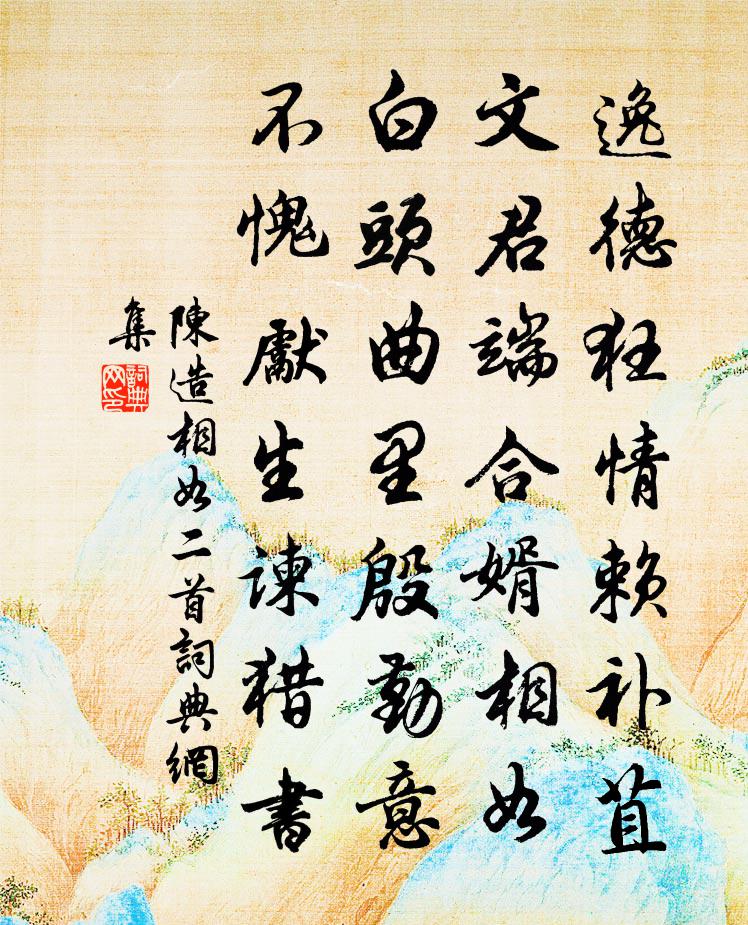 逸德狂情賴补苴
文君端合婿相如
白頭曲里殷勤意
不愧獻生諫猎書
陳造相如二首詞典網
集
詞典
网印